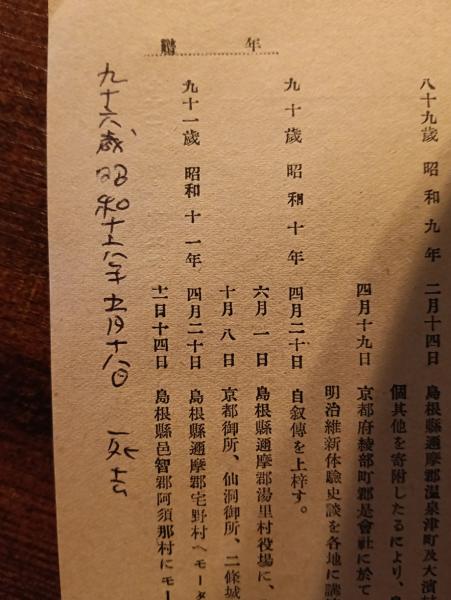 年譜
八十九歳 昭和九年 二月十四日 島根縣邇摩郡温泉津町及大濱
個其他を寄附したるにより、
四月十九日 京都府綾部町郡是會社に於て
明治維新体驗史談を各地に講
九十歳 昭和十年 四月二十日 自叙傳を上梓す。
六月一日 島根縣邇摩郡湯里村役場に、
十月八日 京都御所、仙洞御所、二條城
九十一歳 昭和十一年 四月二十日 島根縣邇摩郡宅野村へモータ
十一月十四日 島根縣邑智郡阿須那村にモー
九十六歳昭和十六年五月十八日 死去